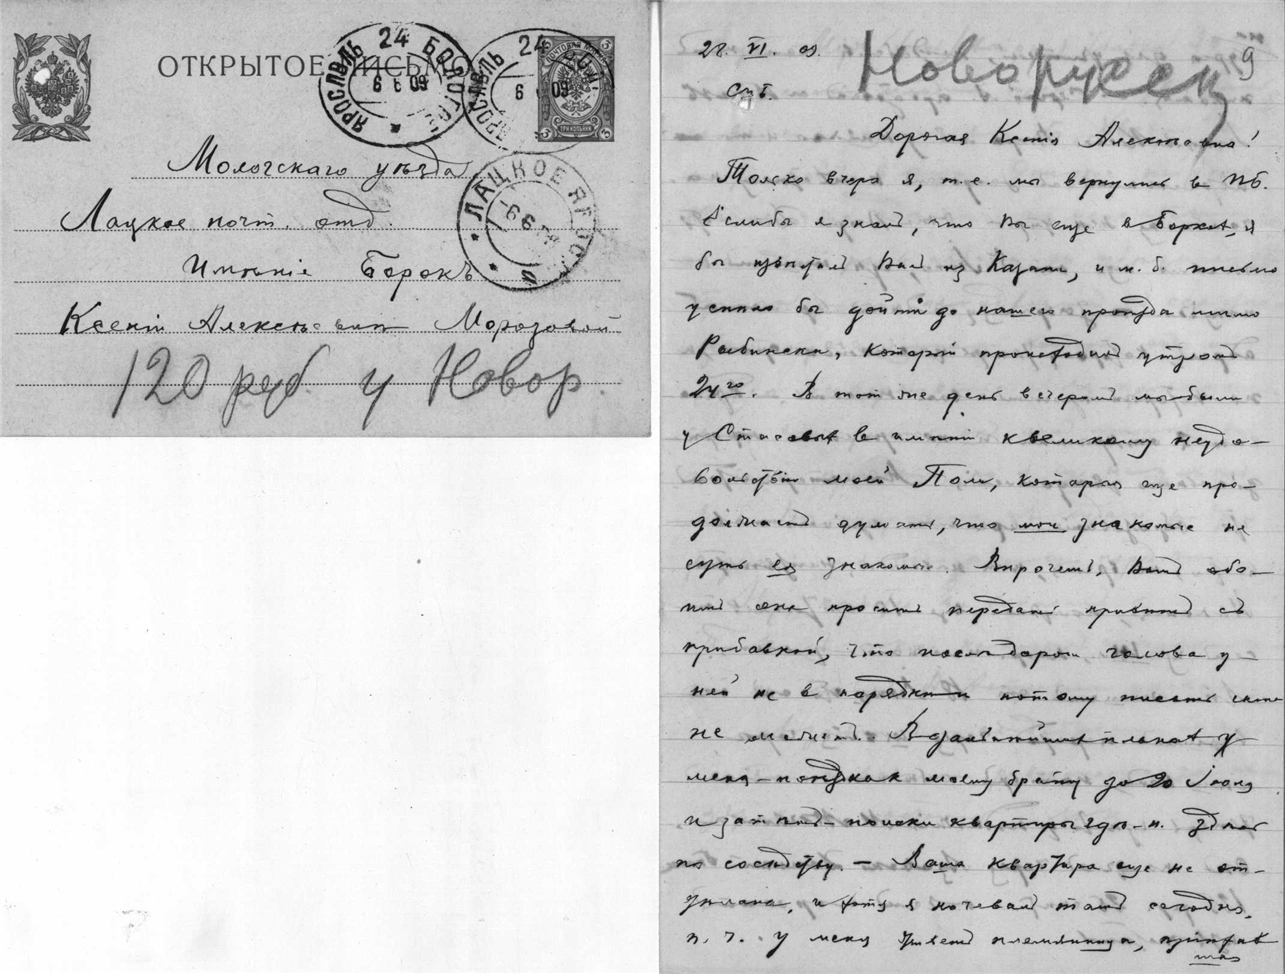 ОТКРЫТОЕ ПИСЬМО
ЯРОСЛАВЛЬ 24 БОЛОГОЕ
6 6 09
ЯРОСЛАВЛЬ 24
6 09
ЛАЦКОЕ ЯРОСЛ
6 6
3 3
ТРИ КОПѢЙКИ
Мологскаго уѣзда
Лацкое почт. отд.
Имѣніе Борокъ
Ксеніи Алексѣевнѣ Морозовой
120 руб. у Новор.
28. VI. 09.
Новорусск
9
Спб.
Дорогая Ксенія Алексѣевна!
Только вчера я, т. е. мы вернулись в Пб.
Если бы я знал, что Вы еще в Борке, я
бы Вам из Казани, и м. б. письмо
успело бы дойти до нашего проѣзда мимо
Рыбинска, который утром
24го. В тот же день вечером мы были
у Стасовых в имѣніи к великому неудо-
вольствію моей Поли, которая еще про-
должает думать, что мои знакомые не
суть ея знакомые. Впрочем, Вам обо-
им она просит передать привѣт съ
прибавкой, что голова у
ней не в порядке и потому писать она
не может. В планах у
меня - поѣздка к моему брату до 20 Іюня
и затѣм - поиски квартиры гдѣ-н. здѣсь
по сосѣдству. - Ваша квартира еще не от-
, и хотя я ночевал там сегодня,
п. ч. у меня племянница,